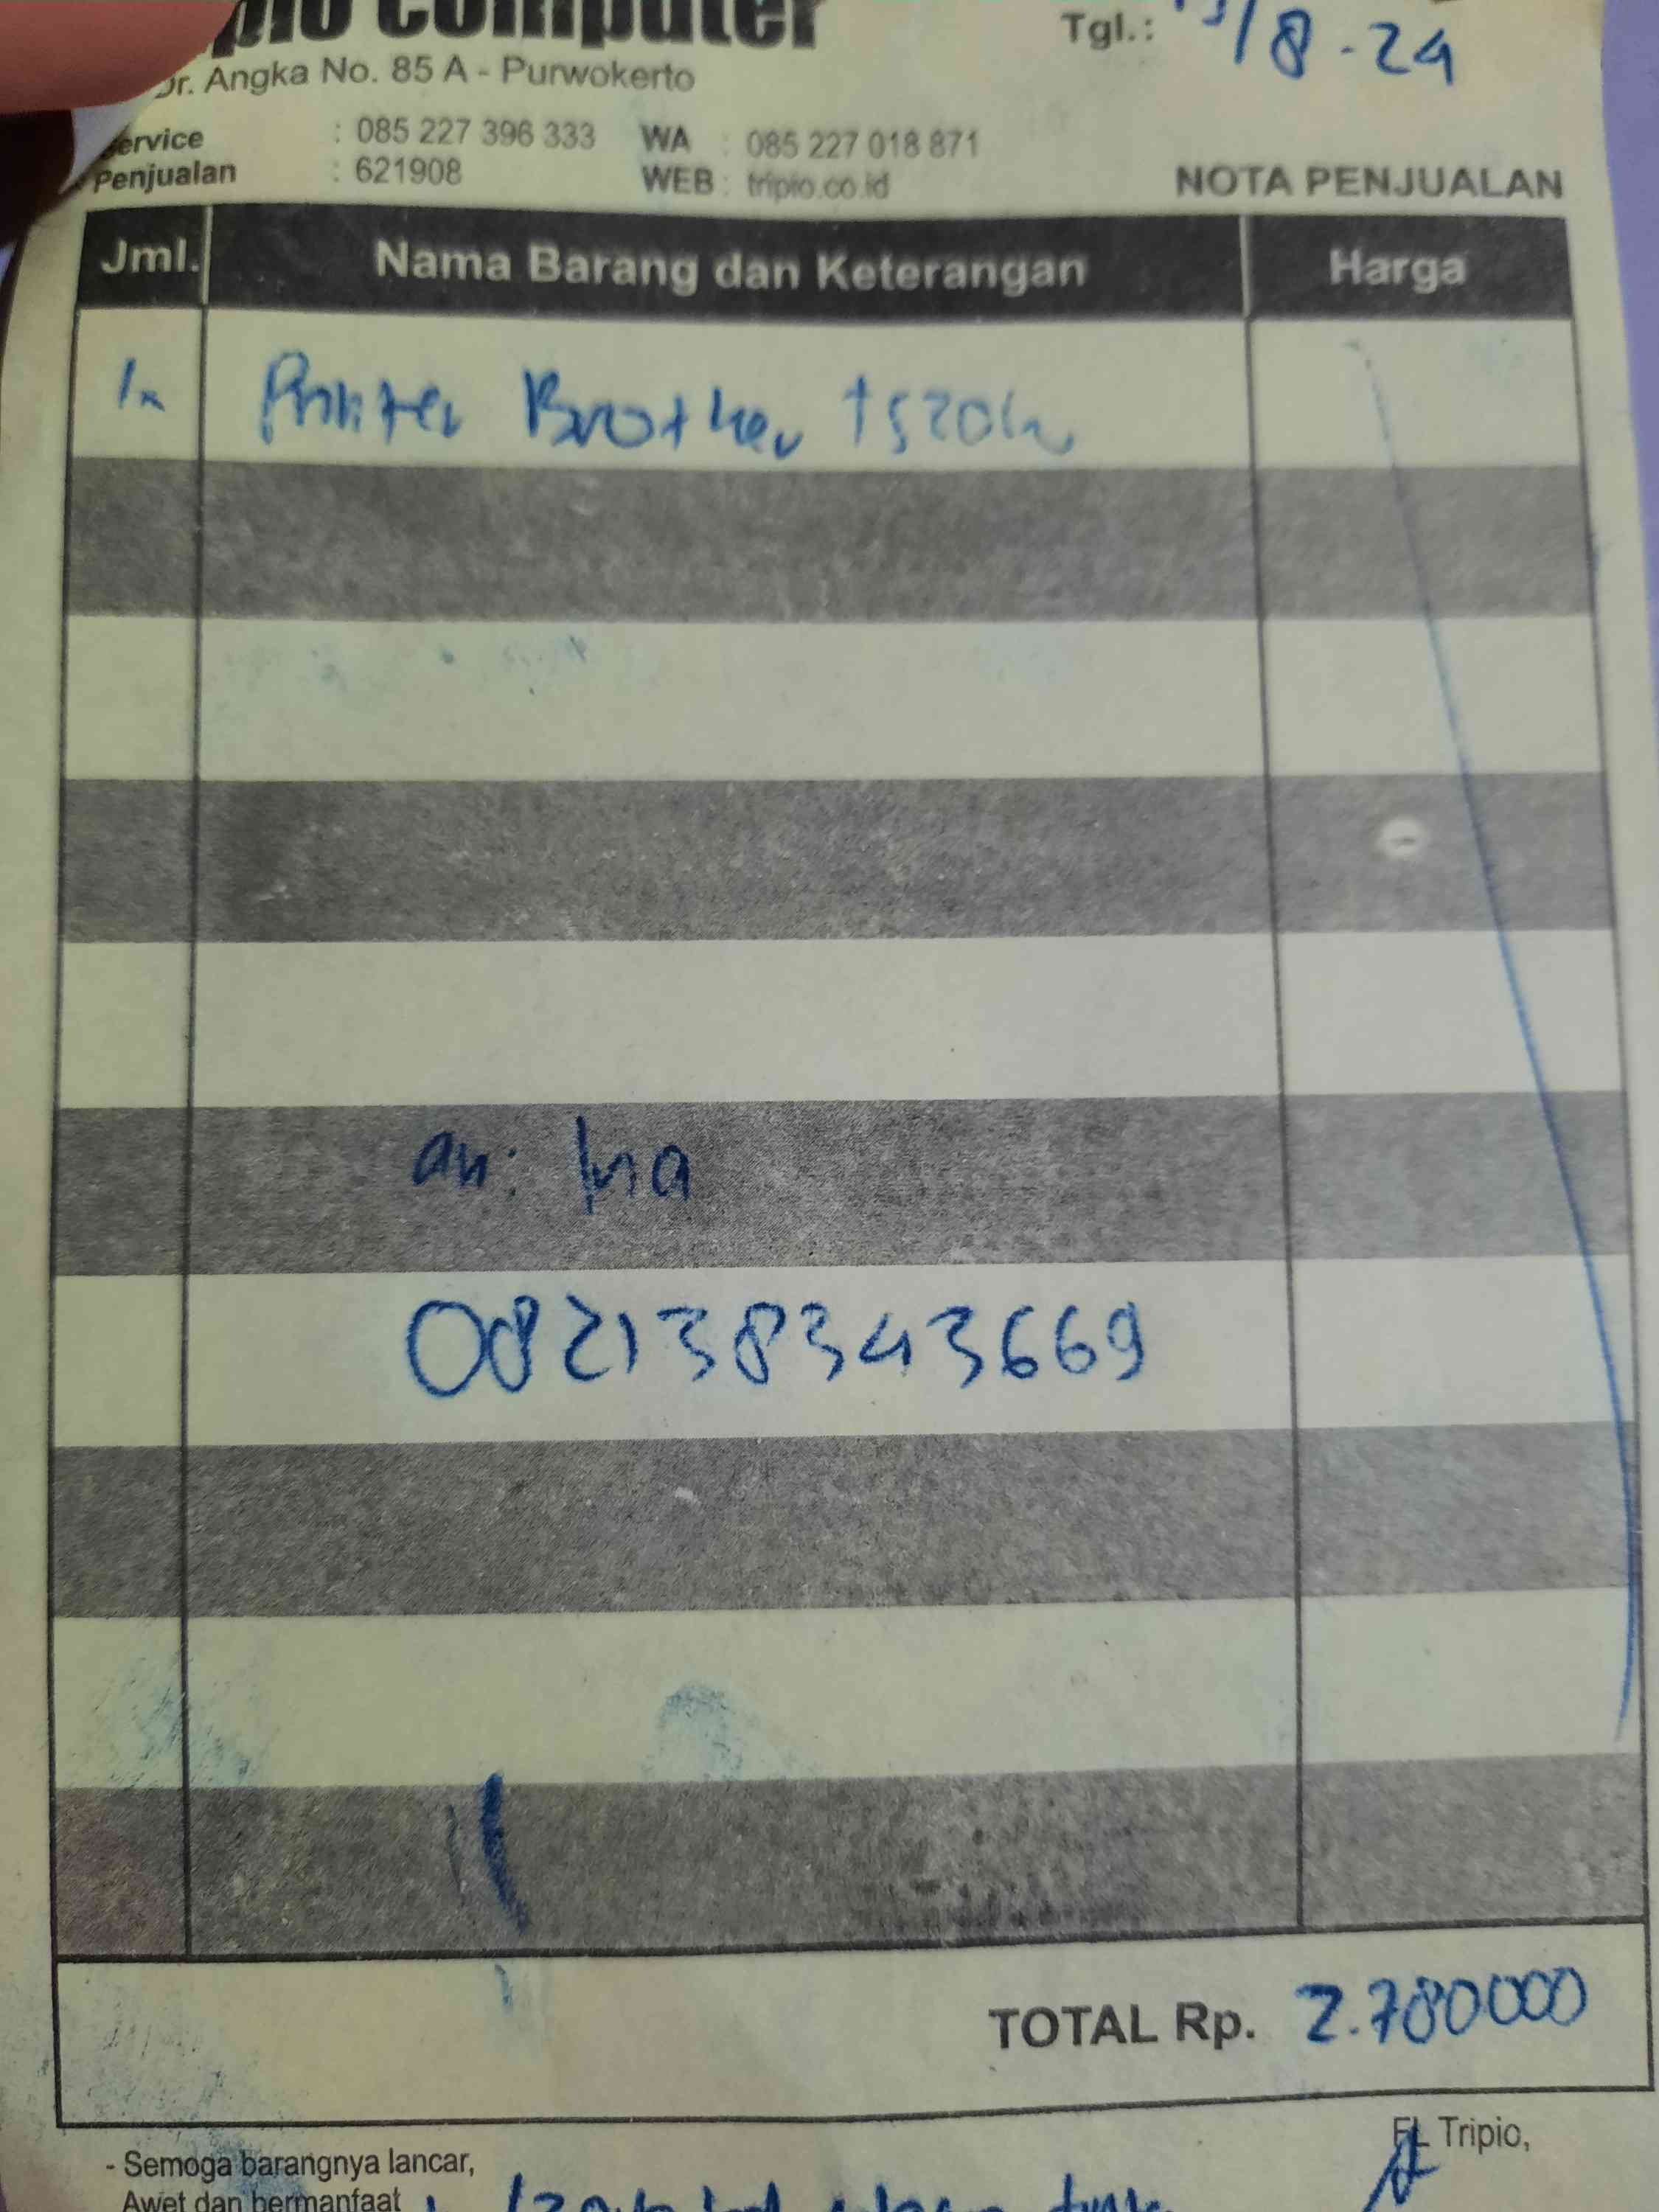 Computer
Tgl.: /8-24
Dr. Angka No. 85 A - Purwokerto
Service : 085 227 396 333 WA : 085 227 018 871
Penjualan : 621908 WEB : tripio.co.id
NOTA PENJUALAN
Jml. Nama Barang dan Keterangan Harga
1x Printer Brother t520w
an: Ina
082138343669
TOTAL Rp. 2.780000
- Semoga barangnya lancar,
Awet dan bermanfaat
Tripio,